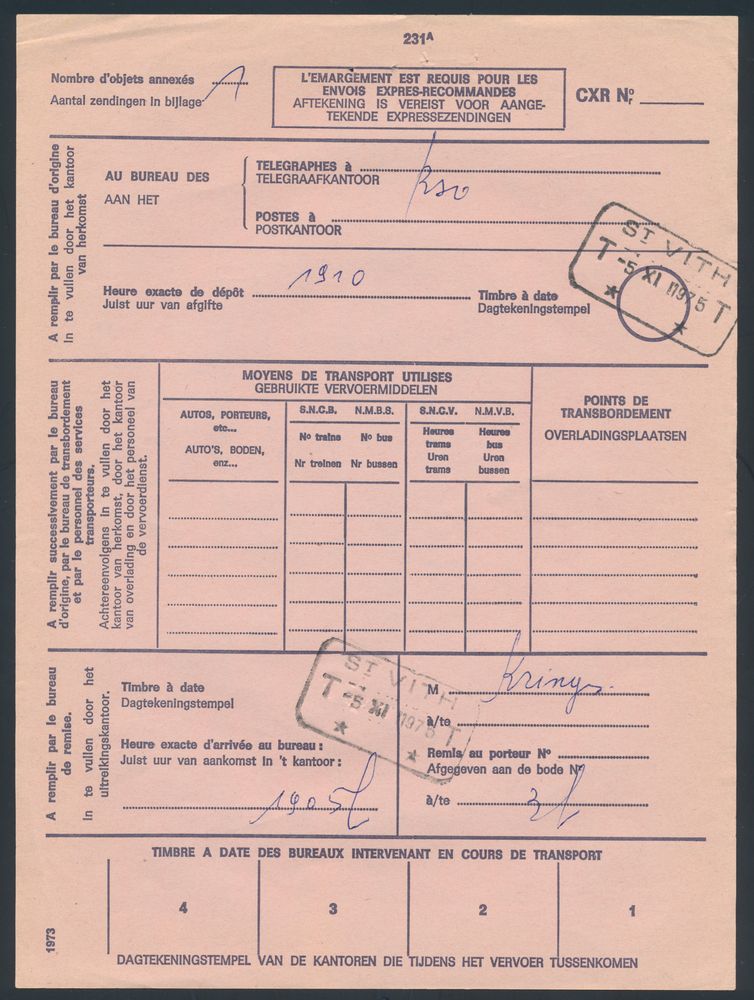 231A
Nombre d'objets annexés 1
Aantal zendingen in bijlage
L'EMARGEMENT EST REQUIS POUR LES
ENVOIS EXPRES-RECOMMANDES
AFTEKENING IS VEREIST VOOR AANGE-
TEKENDE EXPRESSEZENDINGEN
CXR No/r
A remplir par le bureau d'origine
In te vullen door het kantoor
van herkomst
AU BUREAU DES
AAN HET
TELEGRAPHES à
TELEGRAAFKANTOOR
POSTES à
POSTKANTOOR
Heure exacte de dépôt 1910
Juist uur van afgifte
Timbre à date
Dagtekeningstempel
ST VITH
T -5 XI 1975 T
A remplir successivement par le bureau
d'origine, par le bureau de transbordement
et par le personnel des services
transporteurs.
Achtereenvolgens in te vullen door het
kantoor van herkomst, door het kantoor
van overlading en door het personeel van
de vervoerdienst.
MOYENS DE TRANSPORT UTILISES
GEBRUIKTE VERVOERMIDDELEN
AUTOS, PORTEURS,
etc...
AUTO'S, BODEN,
enz...
S.N.C.B. N.M.B.S.
No trains No bus
Nr treinen Nr bussen
S.N.C.V. N.M.V.B.
Heures trams
Uren trams
Heures bus
Uren bussen
POINTS DE
TRANSBORDEMENT
OVERLADINGSPLAATSEN
A remplir par le bureau
de remise.
In te vullen door het
uitreikingskantoor.
Timbre à date
Dagtekeningstempel
ST VITH
T -5 XI 1975 T
Heure exacte d'arrivée au bureau :
Juist uur van aankomst in 't kantoor :
1905
M Krings
à/te
Remis au porteur No
Afgegeven aan de bode Nr
à/te
TIMBRE A DATE DES BUREAUX INTERVENANT EN COURS DE TRANSPORT
4 3 2 1
DAGTEKENINGSTEMPEL VAN DE KANTOREN DIE TIJDENS HET VERVOER TUSSENKOMEN
1973